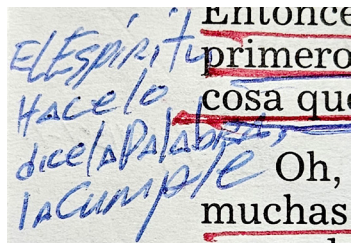 El Espíritu
Hace lo
dice la Palabra,
la cumple
Entonce
primero
cosa que
Oh,
muchas